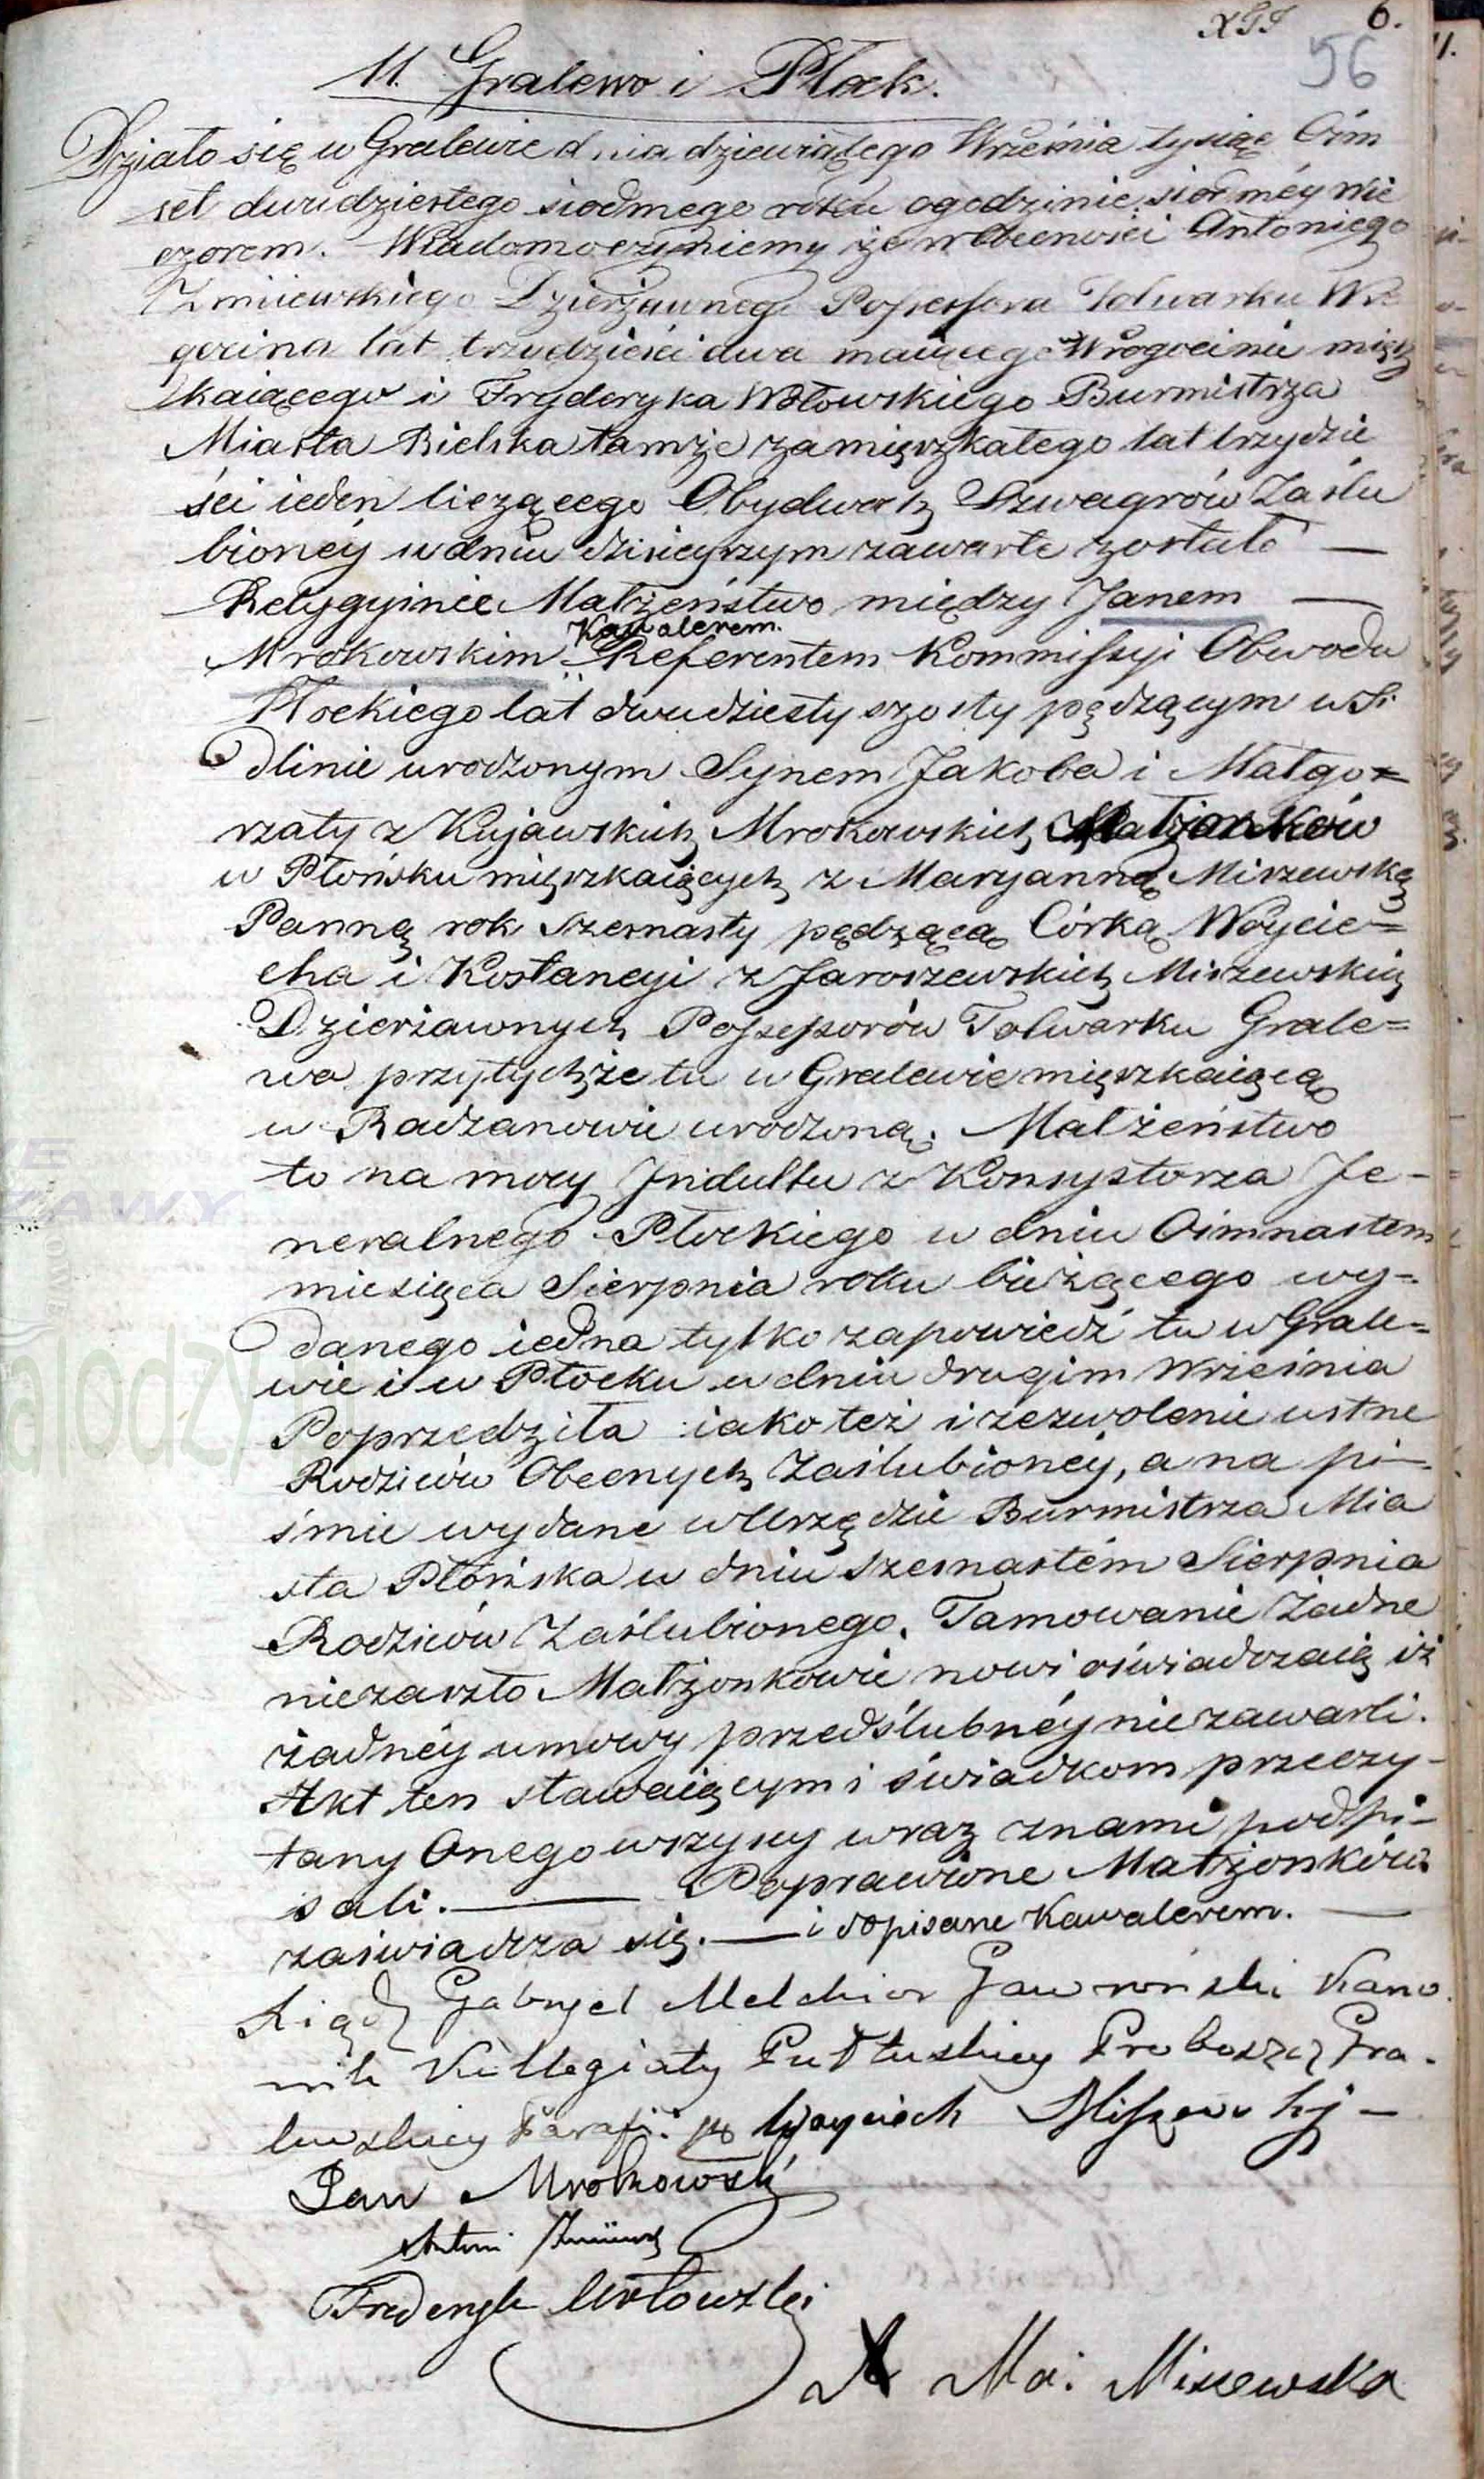 XII 6.
56
11. Gralewo i Płock.
Działo się w Gralewie dnia dziewiątego Września tysiąc Ośm
set dwudziestego siodmego roku ogodzinie siodméy Wie
czorem. Wiadomo czyniemy że w obecności Antoniego
Zmiiewskiego Dzierżawnego Possessora Folwarku Wro
gocina lat trzydzieści dwa maiącego w Wrogocinie miesz
kaiącego i Fryderyka Wołowskiego Burmistrza
Miasta Bielska tamże zamięszkałego lat trzydzie
ści ieden liczącego Obydwóch Szwagrów Zaślu
bionéy w dniu dzisieyszym zawarte zostało —
Religyinie Małżeństwo między Janem —
Kawalerem.
Mrokowskim Referentem Kommissyi Obwodu
Płockiego lat dwudziesty szosty pędzącym w Si
dlinie urodzonym Synem Jakoba i Małgo=
rzaty z Kujawskich Mrokowskich Małżonków
w Płońsku mięszkaiących z Maryanną Miszewską
Panną rok szesnasty pędzącą Córką Woycie=
cha i Kostancyi z Jaroszewskich Miszewskich
Dzierżawnych Possessorów Folwarku Grale=
wa przytychże tu w Gralewie mięszkaiącą
w Radzanowie urodzoną. Małżeństwo
to na mocy Indultu z Konsystorza Je-
neralnego Płockiego w dniu Osmnastem
miesiąca Sierpnia roku bieżącego wy-
danego iedna tylko zapowiedź tu w Grale=
wie i w Płocku w dniu drugim Września
Poprzedziła iako też i zezwolenie ustne
Rodziców Obecnych Zaślubionéy, a na pi-
śmie wydane w Urzędzie Burmistrza Mia
sta Płońska w dniu szesnastém Sierpnia
Rodziców Zaślubionego. Tamowanie Żadne
niezaszło Małżonkowie nowi oświadczaią iż
żadnéy umowy przedślubnéy niezawarli.
Akt ten stawaiącym i świadkom przeczy-
tany Onego wszyscy wraz znami podpi-
sali. — Poprawione Małżonków
zaświadcza się. — i dopisane Kawalerem. —
Xiądz Gabryel Melchior Gawroński Kano
nik Kollegiaty Pułtuskiey Proboszcz Gra-
lewskiey Parafii. Woyciech Miszewsky -
Jan Mrokowski
Antoni Zmiiewski
Frederyk Wołowski
X Ma: Miszewska